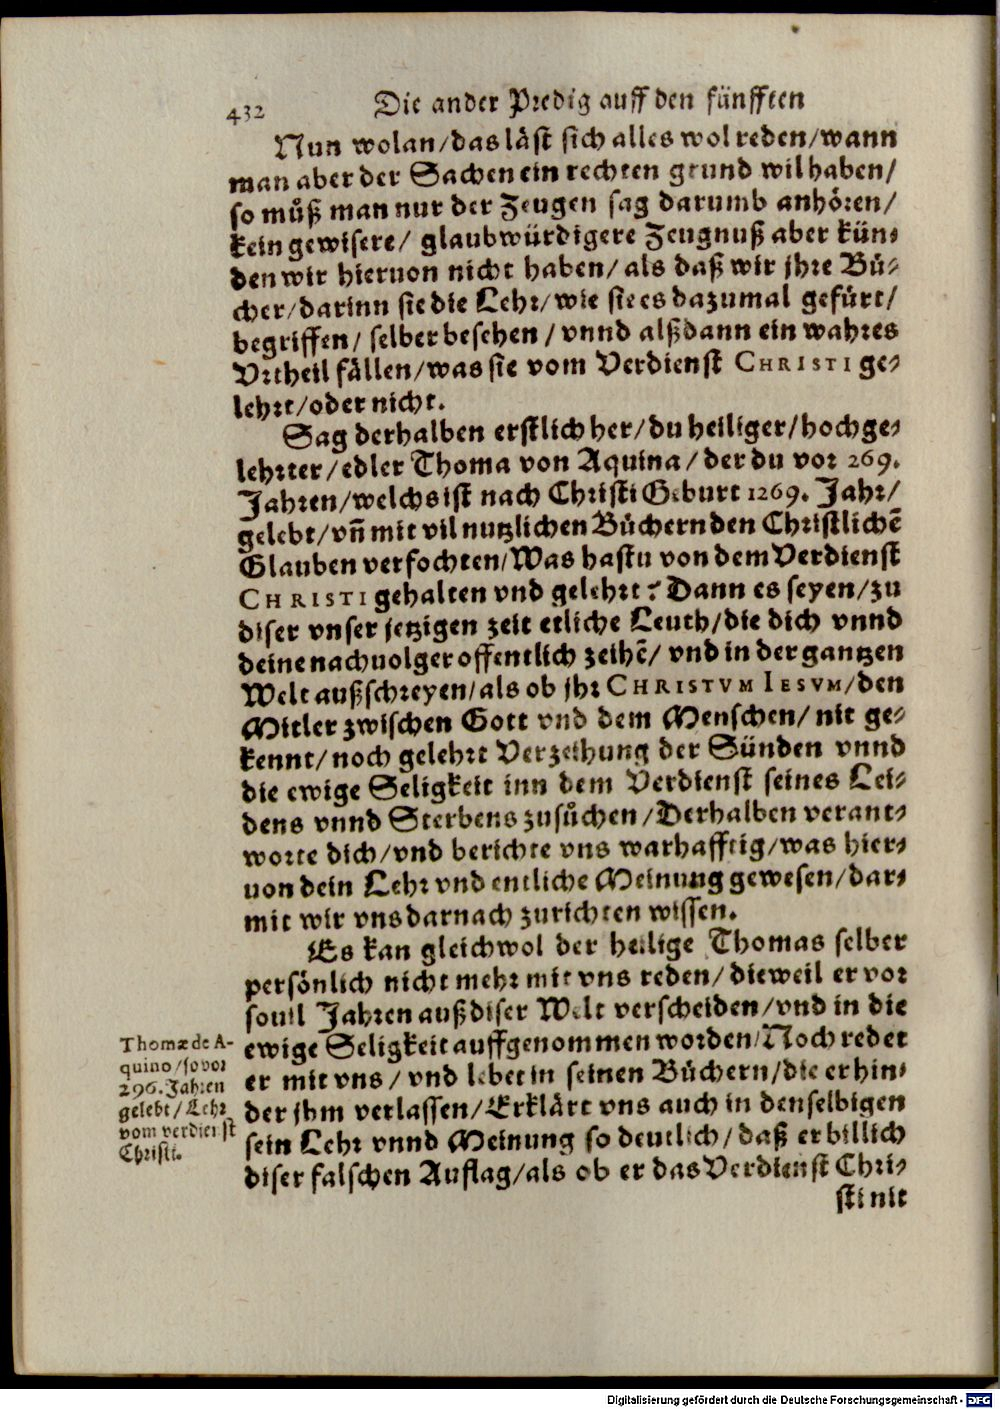 432 Die ander Predig auff den fünfften
Nun wolan/das läst sich alles wol reden/wann
man aber der Sachen ein rechten grund wil haben/
so můß man nur der Zeugen sag darumb anhören/
kein gewisere/ glaubwürdigere Zeugnuß aber kün-
den wir hieruon nicht haben/als daß wir jhre Bů-
cher/darinn sie die Lehr/wie sie es dazumal gefürt/
begriffen/ selber besehen/ vnnd alßdann ein wahres
Vrtheil fällen/was sie vom Verdienst CHRISTI ge-
lehrt/oder nicht.
Sag derhalben erstlich her/du heiliger/hochge-
lehrter/edler Thoma von Aquina/der du vor 269.
Jahren/welchs ist nach Christi Geburt 1269. Jahr/
gelebt/vñ mit vil nutzlichen Bůchern den Christlichē
Glauben verfochten/Was hastu von dem Verdienst
CHRISTI gehalten vnd gelehrt? Dann es seyen/zu
diser vnser jetzigen zeit etliche Leuth/die dich vnnd
deine nachuolger offentlich zeihē/ vnd in der gantzen
Welt außschreyen/als ob jhr CHRISTVM IESVM/den
Mitler zwischen Gott vnd dem Menschen/ nit ge-
kennt/noch gelehrt Verzeihung der Sünden vnnd
die ewige Seligkeit inn dem Verdienst seines Lei-
dens vnnd Sterbens zusůchen/Derhalben verant-
worte dich/vnd berichte vns warhafftig/was hier-
uon dein Lehr vnd entliche Meinung gewesen/dar-
mit wir vns darnach zurichten wissen.
Es kan gleichwol der heilige Thomas selber
persönlich nicht mehr mit vns reden/dieweil er vor
souil Jahren auß diser Welt verscheiden/vnd in die
ewige Seligkeit auffgenommen worden/Noch redet
er mit vns/ vnd lebet in seinen Bůchern/die er hin-
der jhm verlassen/Erklärt vns auch in denselbigen
sein Lehr vnnd Meinung so deutlich/daß er billich
diser falschen Auflag/als ob er das Verdienst Chri-
sti nit
Thomæ de A-
quino/so vor
296. Jahren
gelebt/Lehr
vom verdienst
Christi.
Digitalisierung gefördert durch die Deutsche Forschungsgemeinschaft - DFG